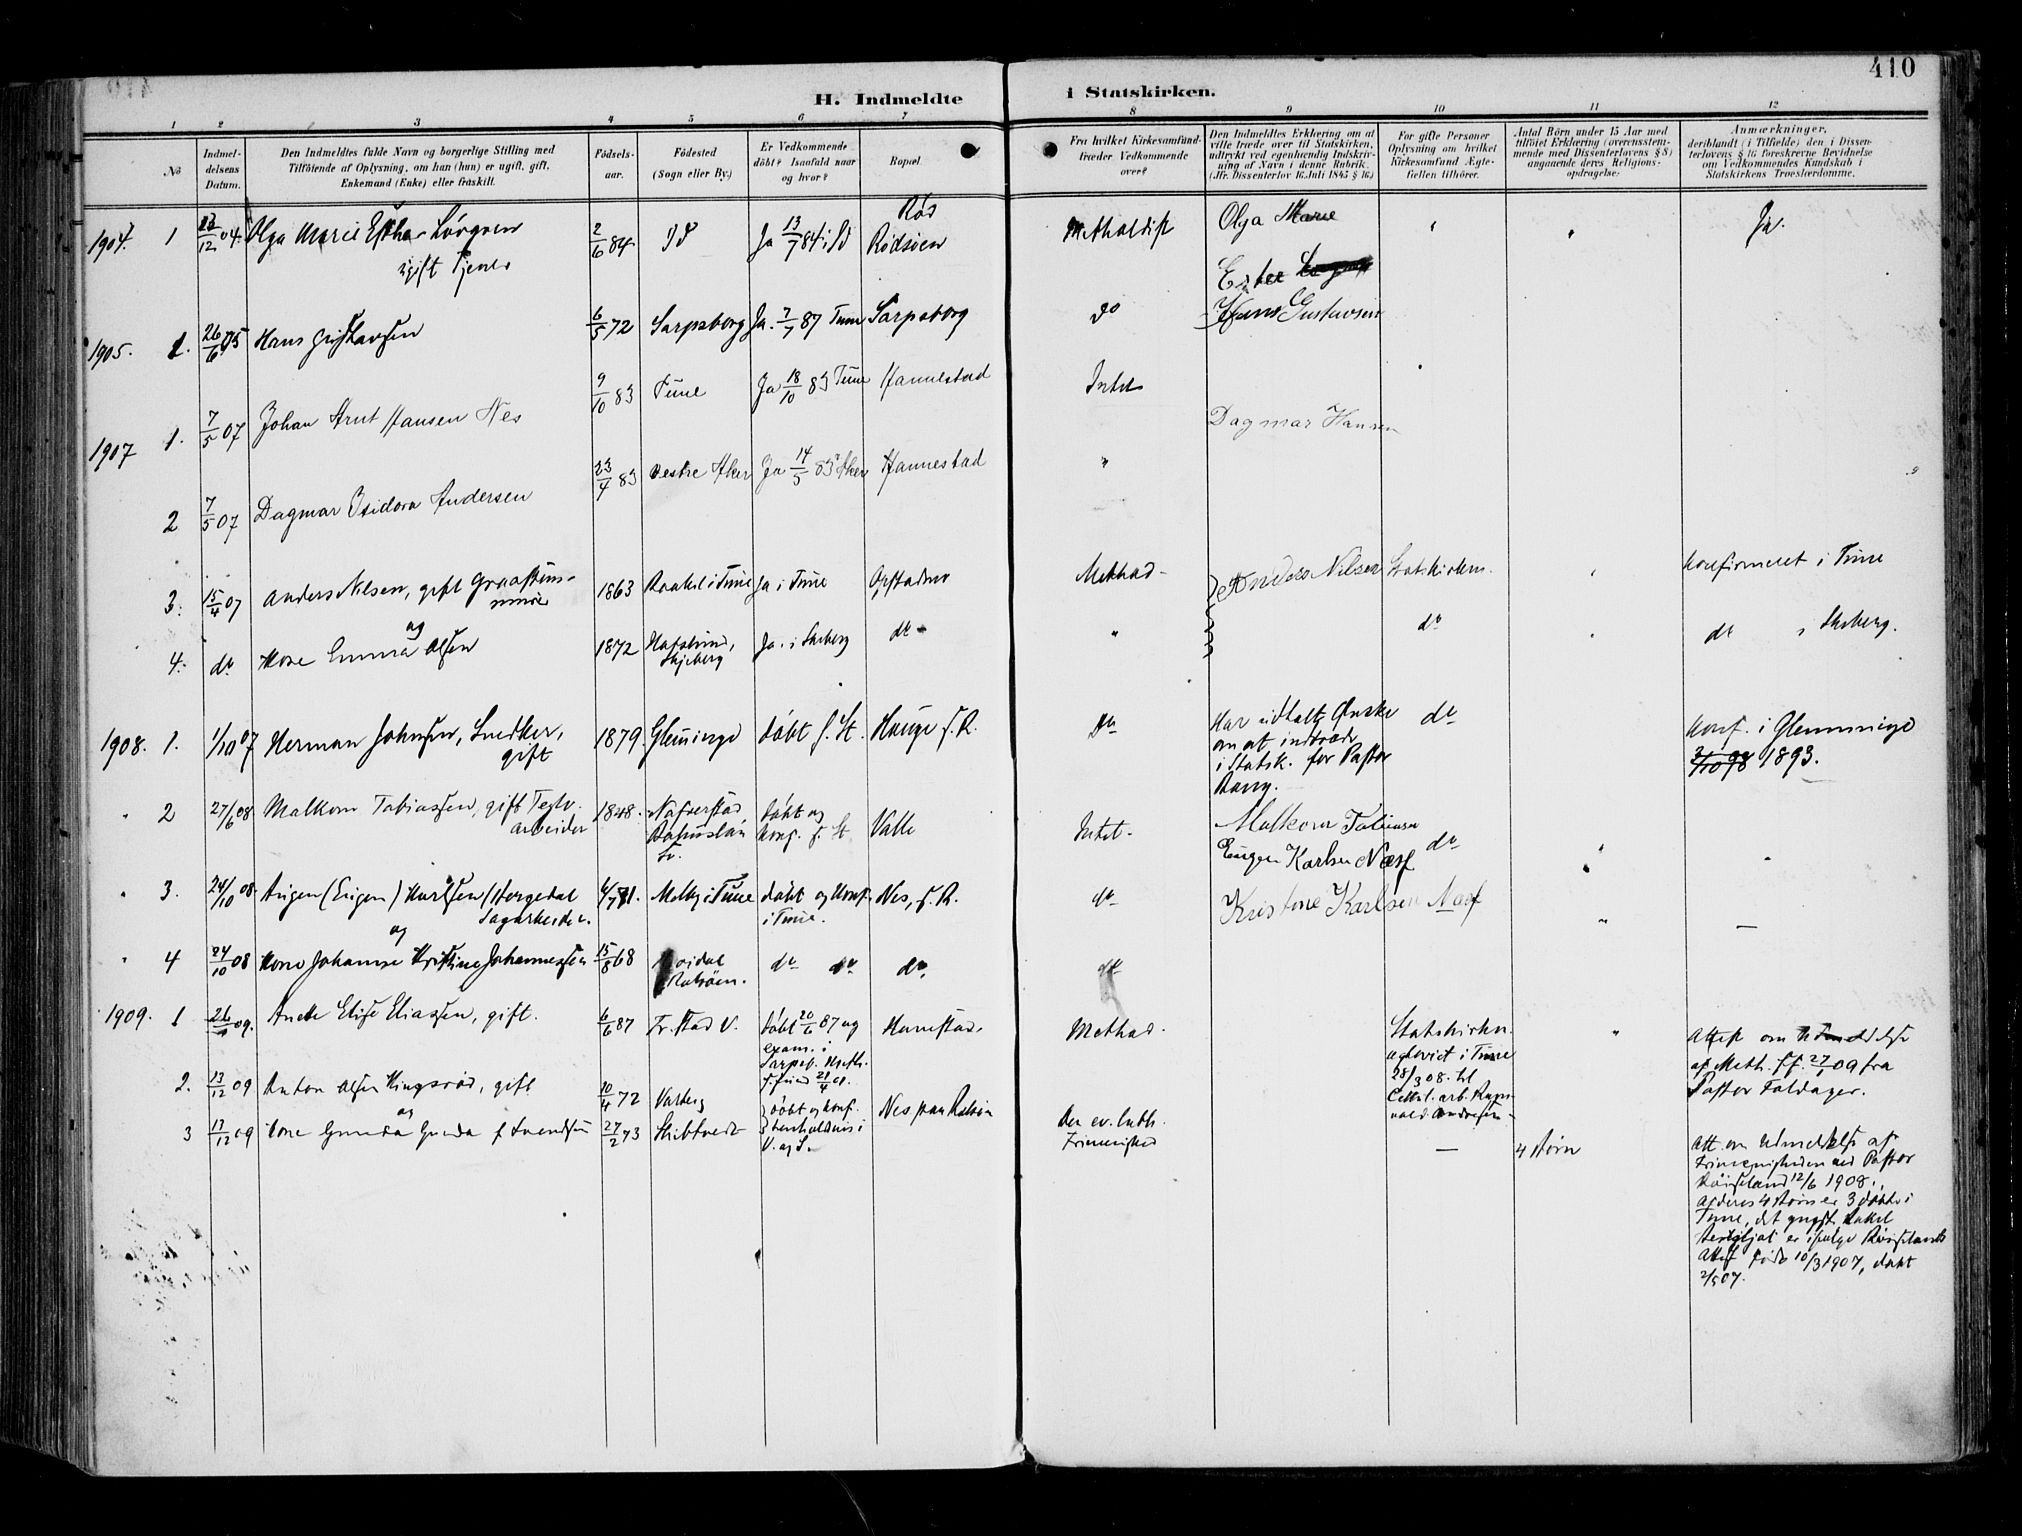 410
H. Indmeldte i Statskirken.
1 2 3 4 5 6 7 8 9 10 11 12
No
Indmel-
delsens
Datum.
Den Indmeldtes fulde Navn og borgerlige Stilling med
Tilföiende af Oplysning, om han (hun) er ugift, gift,
Enkemand (Enke) eller fraskilt.
Födsels-
aar.
Födested
(Sogn eller By.)
Er Vedkommende
döbt? Isaafald naar
og hvor?
Bopæl.
Fra hvilket Kirkesamfund
træder Vedkommende
over?
Den Indmeldtes Erklæring om at
ville træde over til Statskirken,
udtrykt ved egenhændig Indskriv-
ning af Navn i denne Rubrik.
(Jfr. Dissenterlov 16 Juli 1845 § 16.)
For gifte Personer
Oplysning om hvilket
Kirkesamfund Ægte-
fællen tilhörer.
Antal Börn under 15 Aar med
tilföiet Erklæring (overensstem-
mende med Dissenterlovens § 8)
angaaende deres Religions-
opdragelse.
Anmærkninger,
deriblandt (i Tilfælde) den i Dissen-
terlovens § 16 foreskrevne Bevidnelse
om Vedkommendes Kundskab i
Statskirkens Troeslærdomme.
1904. 1 12/12 04. Olga Marie Esther Lövgren 2/6 84. Id Ja 13/7 84 i Id Röd Rödsöen Methodist Olga Marie Ja.
ugift Tjener Ester
1905. 1. 26/6 05 Hans Gustavsen 6/5 72 Sarpsborg Ja. 7/7 87 Tune Sarpsborg do Hans Gustavsen
1907 1. 7/5 07 Johan Arnt Hansen Nes 9/10 83 Tune Ja 18/10 83 Tune Hannestad Intet
Dagmar Hansen
2 7/5 07 Dagmar Isidora Andersen 23/4 83 Vestre Aker Ja 14/5 83 Aker Hannestad "
3. 15/4 07 Anders Nilsen, gift 1863 i Tune Ja i Tune Opstadmo Method- Anders Nilsen Statskirken. Konfirmeret i Tune
og
4. do Kone Emma Olsen 1872 Hafslund, Skjeberg Ja. i Skeberg do " do do i Skeberg.
1908. 1. 1/10 07 Herman Johnsen, Snedker, gift 1879. Glemminge döbt f. St. Hauge f. R. do Har udtalt Önske
om at indtræde
i Statsk. for Pastor
do Konf. i Glemminge
1893.
" 2 27/6 08 Malkom Tobiassen, gift Teglv.
arbeider 1848. döbt og
konf. f. St. Valle Intet. Malkom Tobiasen do
Eugen Karlsen Næss
" 3. 24/10 08 Augen (Eugen) Karlsen
Sagarbeider. i Tune döbt og konf.
i Tune. Nes, f. R. do Kristine Karlsen Næss
og
" 4 24/10 08 Kone Johanne Kristine Johannessen 15/8 68 do do do. do —
1909. 1 26/1 09. Anette Elise Eliassen, gift. 6/6 87 Fr.stad V. döbt 20/6 87 og
exam. i
Sarpsb. Meth. Hannestad. Method. Statskirken.
ogsviet i Tune
28/3 08. til
Attest om Udmeldelse
af Meth. ff. 27/1 09 fra
Pastor Foldager.
2. 13/12 09 Anton Olsen Kingsröd, gift 10/4 72 Varteig döbt og konf.
henholdsvis i
V. og S. Nes paa Rolsöen Den ev. luth.
Frimenighed
og
3 13/12 09 Kone Gunda f. Svendsen 27/2 73 Skibtvedt — 4 Börn
Att. om Udmeldelse af
Frimenigheden ved Pastor
12/6 1908.
Af deres 4 Börn er 3 döbte i
Tune, det yngste Rakel
Bergljot er ifölge
Attest född 10/3 1907, döbt
2/5 07.